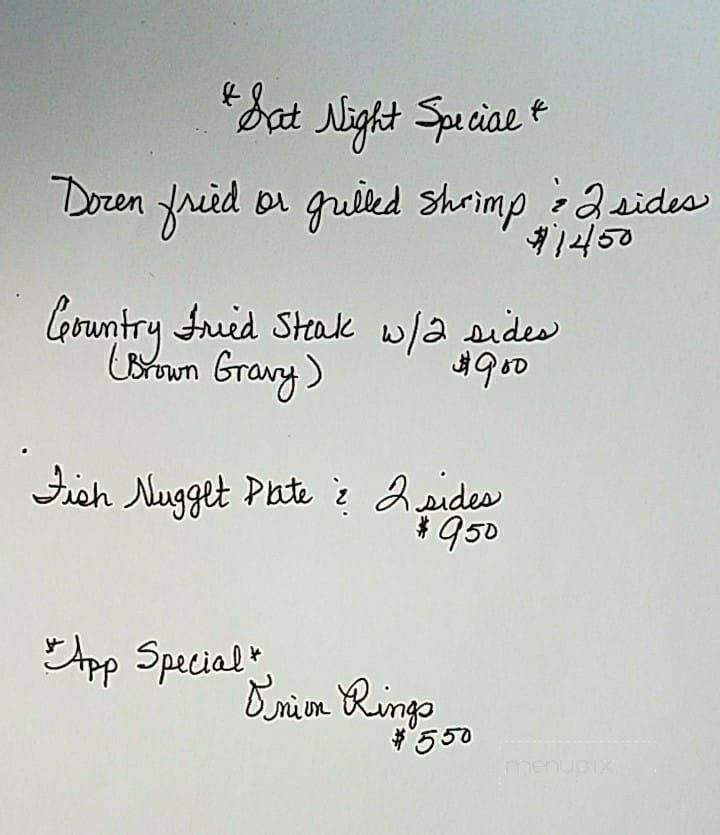 *Sat Night Special*
Dozen fried or grilled shrimp & 2 sides
$1450
Country Fried Steak w/2 sides
(Brown Gravy) $900
Fish Nugget Plate & 2 sides
$950
*App Special*
Onion Rings
$550
menupix